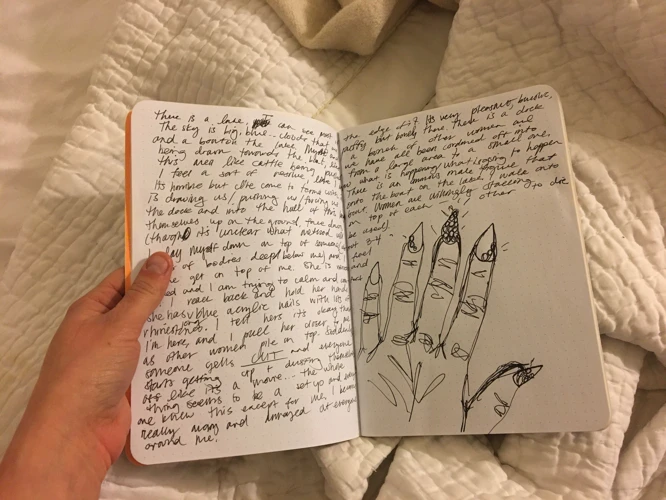 There is a lake, I can see
The sky is big, blue... clouds that
and a boat on the lake. Myself and
being drawn towards the boat, like
this area like cattle being
I feel a sort of passive, like
Its horrible but I've come to terms with
is drawing us/pulling us/forcing us
the dock and into the hull of this
themselves up on the ground, three deep
(though it's unclear what
lay myself down on top of someone
of bodies deep below me) and
one get on top of me. She is
and I am trying to calm and
I reach back and hold her hand
She has blue acrylic nails with lots of
rhinestones. I tell hers its okay that
I'm here, and I pull her closer to me
as other women pile on top. Suddenly
someone yells CUT and everyone
starts getting up + dusting themselves
its like its a movie... the whole
thing seems to be a set up and every
one knew this except for me. I become
really angry and enraged at everyone
around me!
the edge of it. Its very pleasant, bucolic,
pretty but lonely there. There is a dock
a bunch of other women and
we have all been corralled off into
from a large area to a small one,
what is happening, what is going to happen
There is an ominous male figure that
onto the boat on the lake, I walk onto
boat. Women are willingly stacking
on top of each other to die
be used)
3-4
feel
and